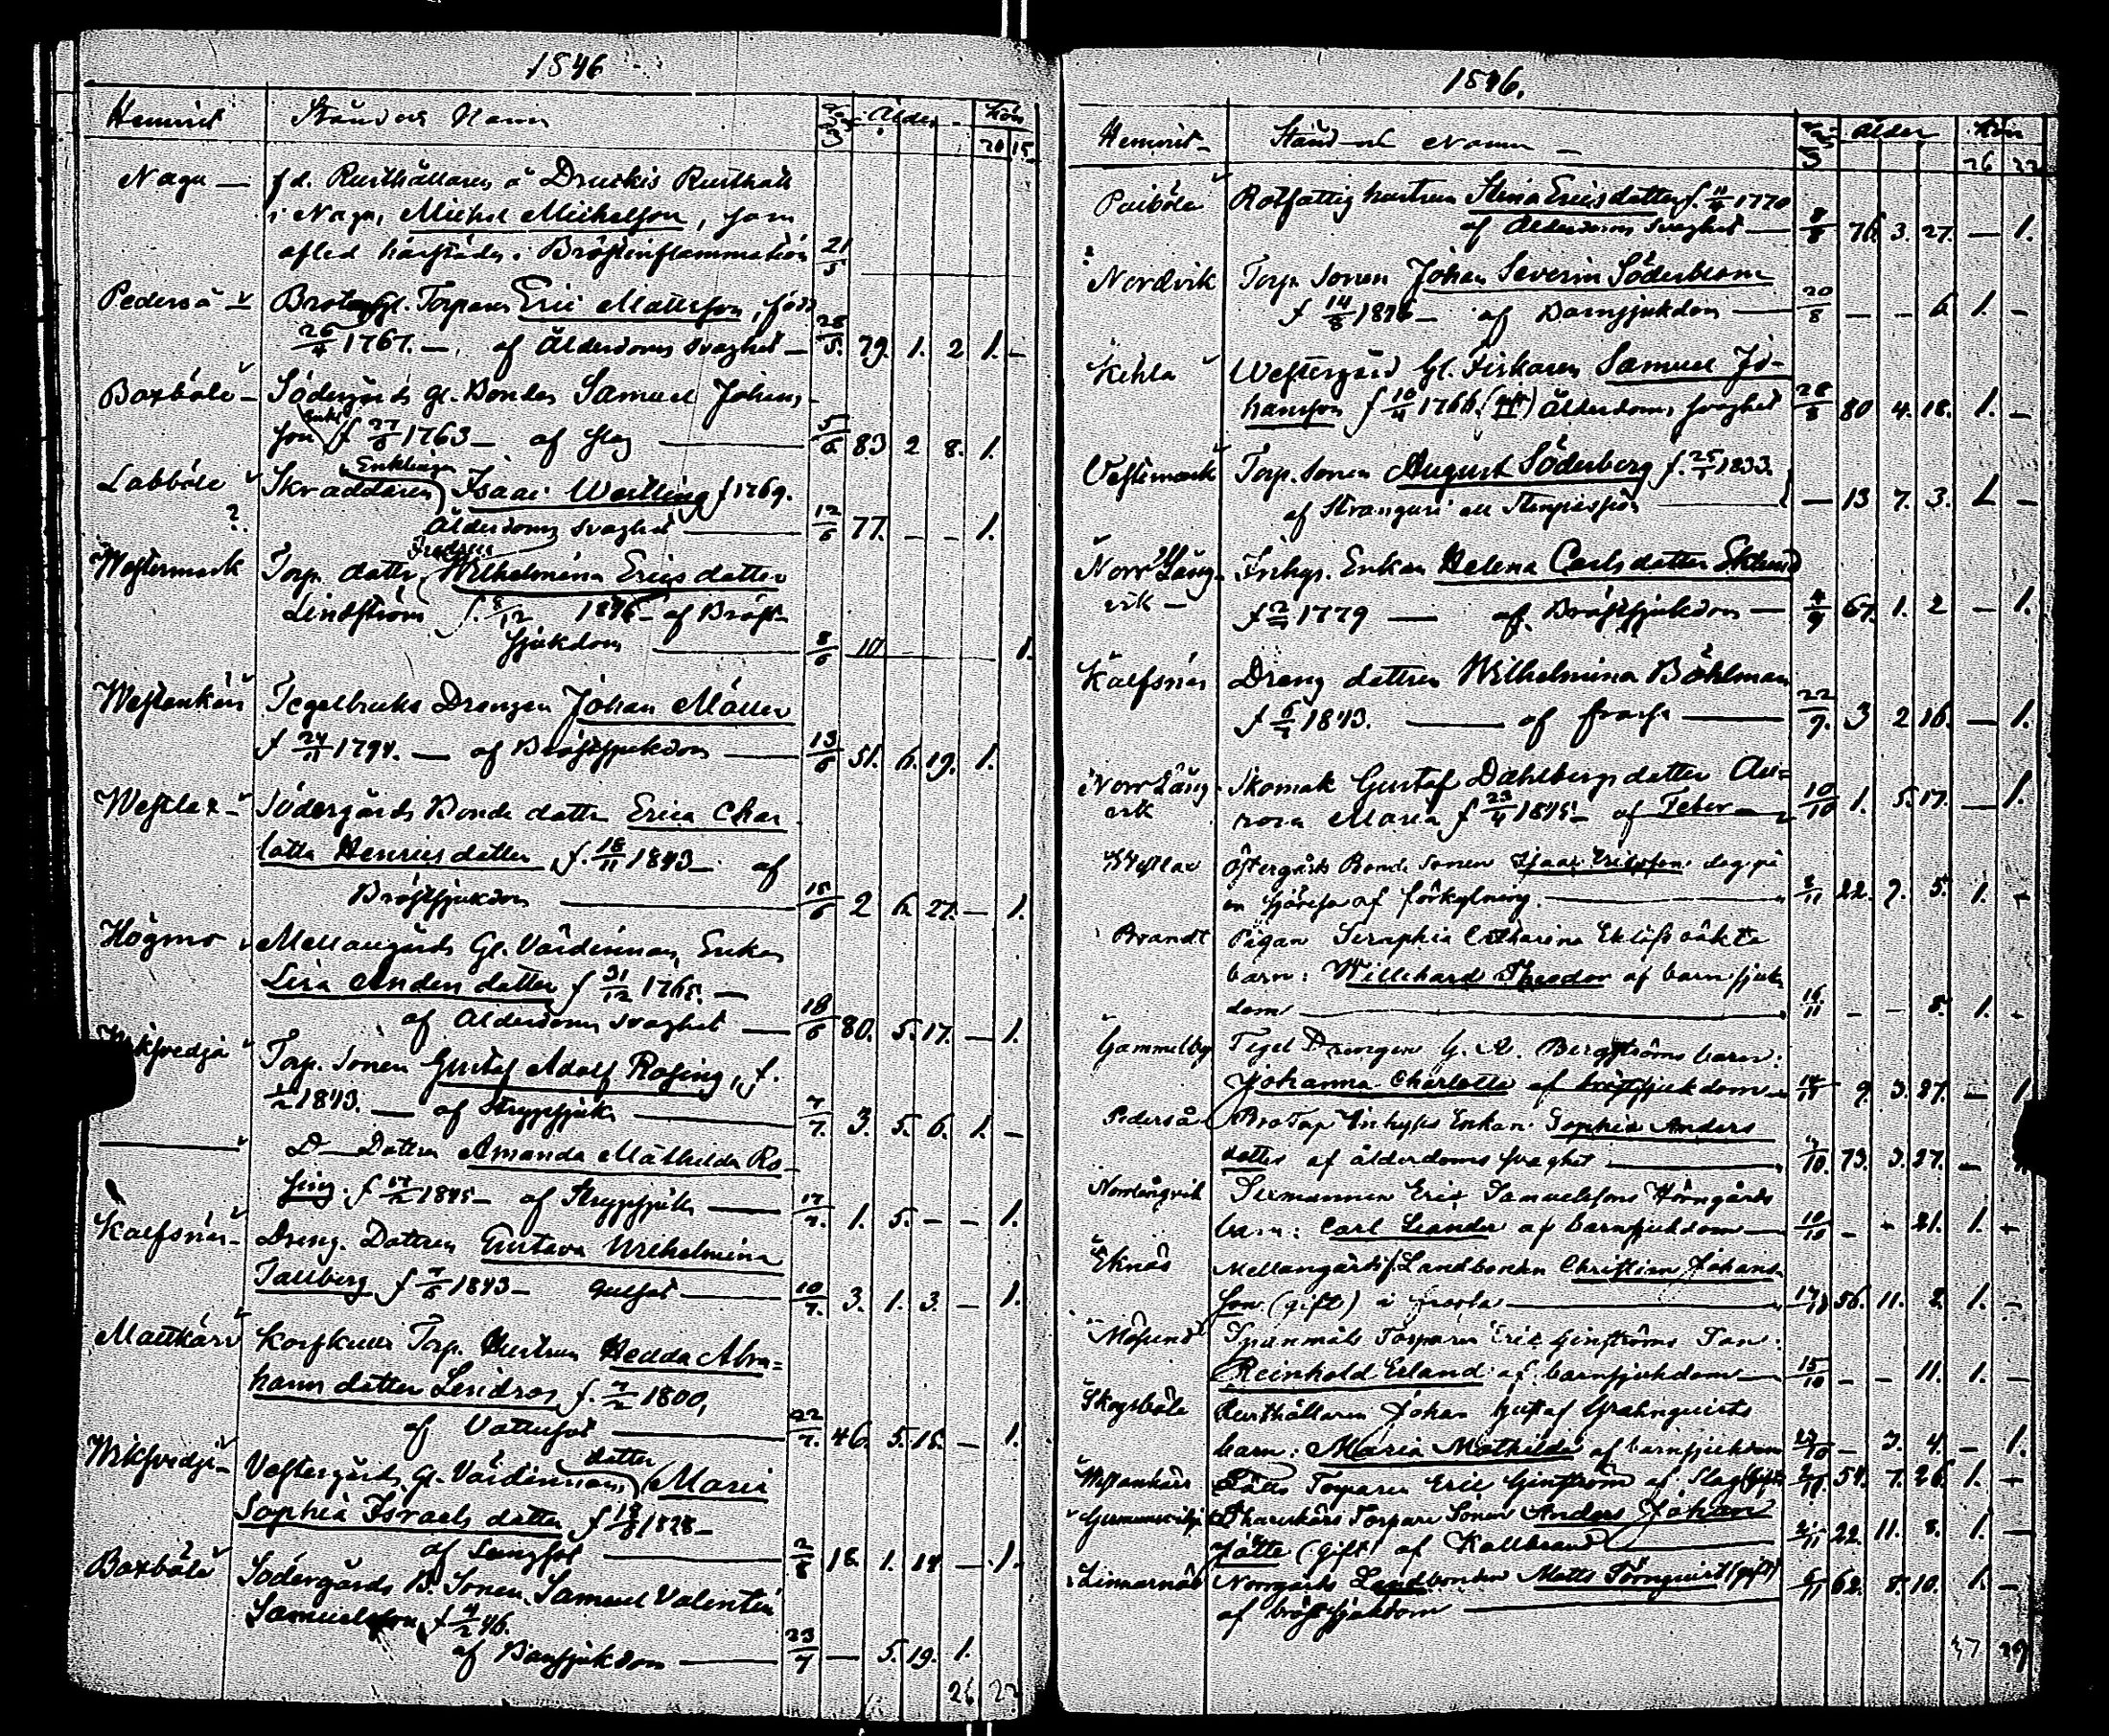 1846
Hemvist Stånd och Namn Ålder Kön
20 15
Nagu — fd. Rusthållaren å Druckis Rusthåll
i Nagu, Michel Michelsson, som
afled härstädes i Bröstinflammation 21/5
Pederså — Gl. Torparen Eric Mattsson, född
26/4 1767. — af Ålderdoms svaghet — 28/5. 79. 1. 2 1. —
Boxböle — Södergårds gl. Bonden Samuel Johans-
son f 27/3 1763 — af slag — 5/6 83 2 8. 1.
Enklingen
Labböle Skräddaren Isaac Westling f 1769.
? Ålderdoms svaghet — 12/6 77. — — 1.
Westermark Torp. dotter, Wilhelmina Ericsdotter
Lindström f. 8/12 1845 — af Bröst-
sjukdom — 8/6 1.
Westankärr Tegelbruks Drengen Johan Möller
f 24/11 1794. — af Bröstsjukdom — 13/6 51. 6. 19. 1.
Westlax — Södergårds Bonde dottr Erica Char
lotta Henricsdotter f. 18/11 1843 — af
Bröstsjukdom — 15/6 2 6. 27. — 1.
Högmo Mellangårds Gl. Värdinnan, Enkan
Lisa Andersdotter f 31/12 1765. —
af Ålderdoms svaghet — 18/6 80. 5. 17. — 1.
Torp. Sonen Gustaf Adolf Rosing, f.
1/2 1843. — af Strypsjuk — 7/7. 3. 5. 6. 1. —
— D— Dottren Amanda Mathilda Ro-
sing. f 17/2 1845 — af Strypsjuk — 17/7. 1. 5. — — 1.
Kalfsnäs — Dreng. Dottren Gustava Wilhelmina
Tallberg f 7/6 1843 — Gulsot — 10/7. 3. 1. 3. — 1.
Mattkärr Korskulla Torp. Hustrun Hedda Abra-
hams dotter Lindros f. 7/2 1800,
af Vattusot — 22/7. 46. 5. 15. — 1.
dotter
Wiksvedja — Vestergårds Gl. Värdinnans, Maria
Sophia Israels dotter f 19/6 1828 —
af Lungsot — 2/8 18. 1. 14. — 1.
Boxböle Södergårds B. Sonen, Samuel Valentin
Samuelsson, f 4/2 46.
af Barnsjukdom — 23/7 — 5. 19. 1.
26 22
1846.
Hemvist — Stånd och Namn — Ålder Kön
26 22
Paiböle Rotfattig hustrun Stina Ericsdotter f. 11/4 1770
af Ålderdoms svaghet — 8/8 76. 3. 27. — 1.
Nordvik Torp. Sonen Johan Severin Söderblom
f 14/8 1846 — af Barnsjukdom — 20/8 — — 6. 1. —
Kehla Westergård Gl. Fiskaren Samuel Jo-
hansson f 10/4 1766. Ålderdoms svaghet 28/8 80 4. 18. 1. —
Vestermark Torp. Sonen August Söderberg f. 25/1 1833.
af Stranguri — — 13 7. 3. 1. —
Norr Lång- Inhys. Enkan Helena Carlsdotter Eklund
vik — f 2/8 1779 — af Bröstsjukdom — 4/9 67. 1. 2 — 1.
Kalfsnäs Dreng dottren Wilhelmina Böhlman
f 6/7 1843. — af frossa — 22/9. 3 2 16. — 1.
Norr Lång- Skomak Gustaf Dahlbergs dotter Au-
vik rora Maria f 23/4 1845 — af Feber — 10/10 1. 5. 17. — 1.
Westlax Östergårds Bonde Sonen Isaac Ericsson dog på
en sjöresa af förkylning. — 22. 7. 5. 1. —
Brandt Pigan Seraphia Catharina Eklöfs oäkta
barn: Willehard Theodor af barnsjuk
dom — 16/11 — — 8. 1. —
Gammelby Tegel Drengen G. A. Bergströms barn:
Johanna Charlotta af bröstsjukdom — 9. 3. 27. — 1.
Pederså Bro Torp Inhyses Enkan Sophia Anders
dotter af ålderdoms svaghet — 73. 3. 27. —
Nordingvik Eric Samuelssons
barn: Carl Leander af barnsjukdom — 10/10 — — 21. 1. —
Eknäs Mellangårds Landbonden Christian Johans
son (gift) i frossa — 17/10 56. 11. 2. 1. —
Mösund Spånmåls Torparen Eric Ginströms Son:
Reinhold Erland af barnsjukdom — 15/10 — — 11. 1. —
Skogsböle Rusthållaren Johan Gustaf Grahnquists
barn: Maria Mathilda af barnsjukdom 23/10 — 3. 4. — 1.
Westankärr Torparen Eric Ginström af Slag (gift) 54. 7. 26. 1. —
Torpare Sonen Anders Johan
Jätte (gift) af Kallbrand — 22. 11. 8. 1. —
Linnarnäs Norrgårds Landbonden Matts Törnquist (gift) 62. 8. 10. 1. —
af bröstsjukdom —
37 29